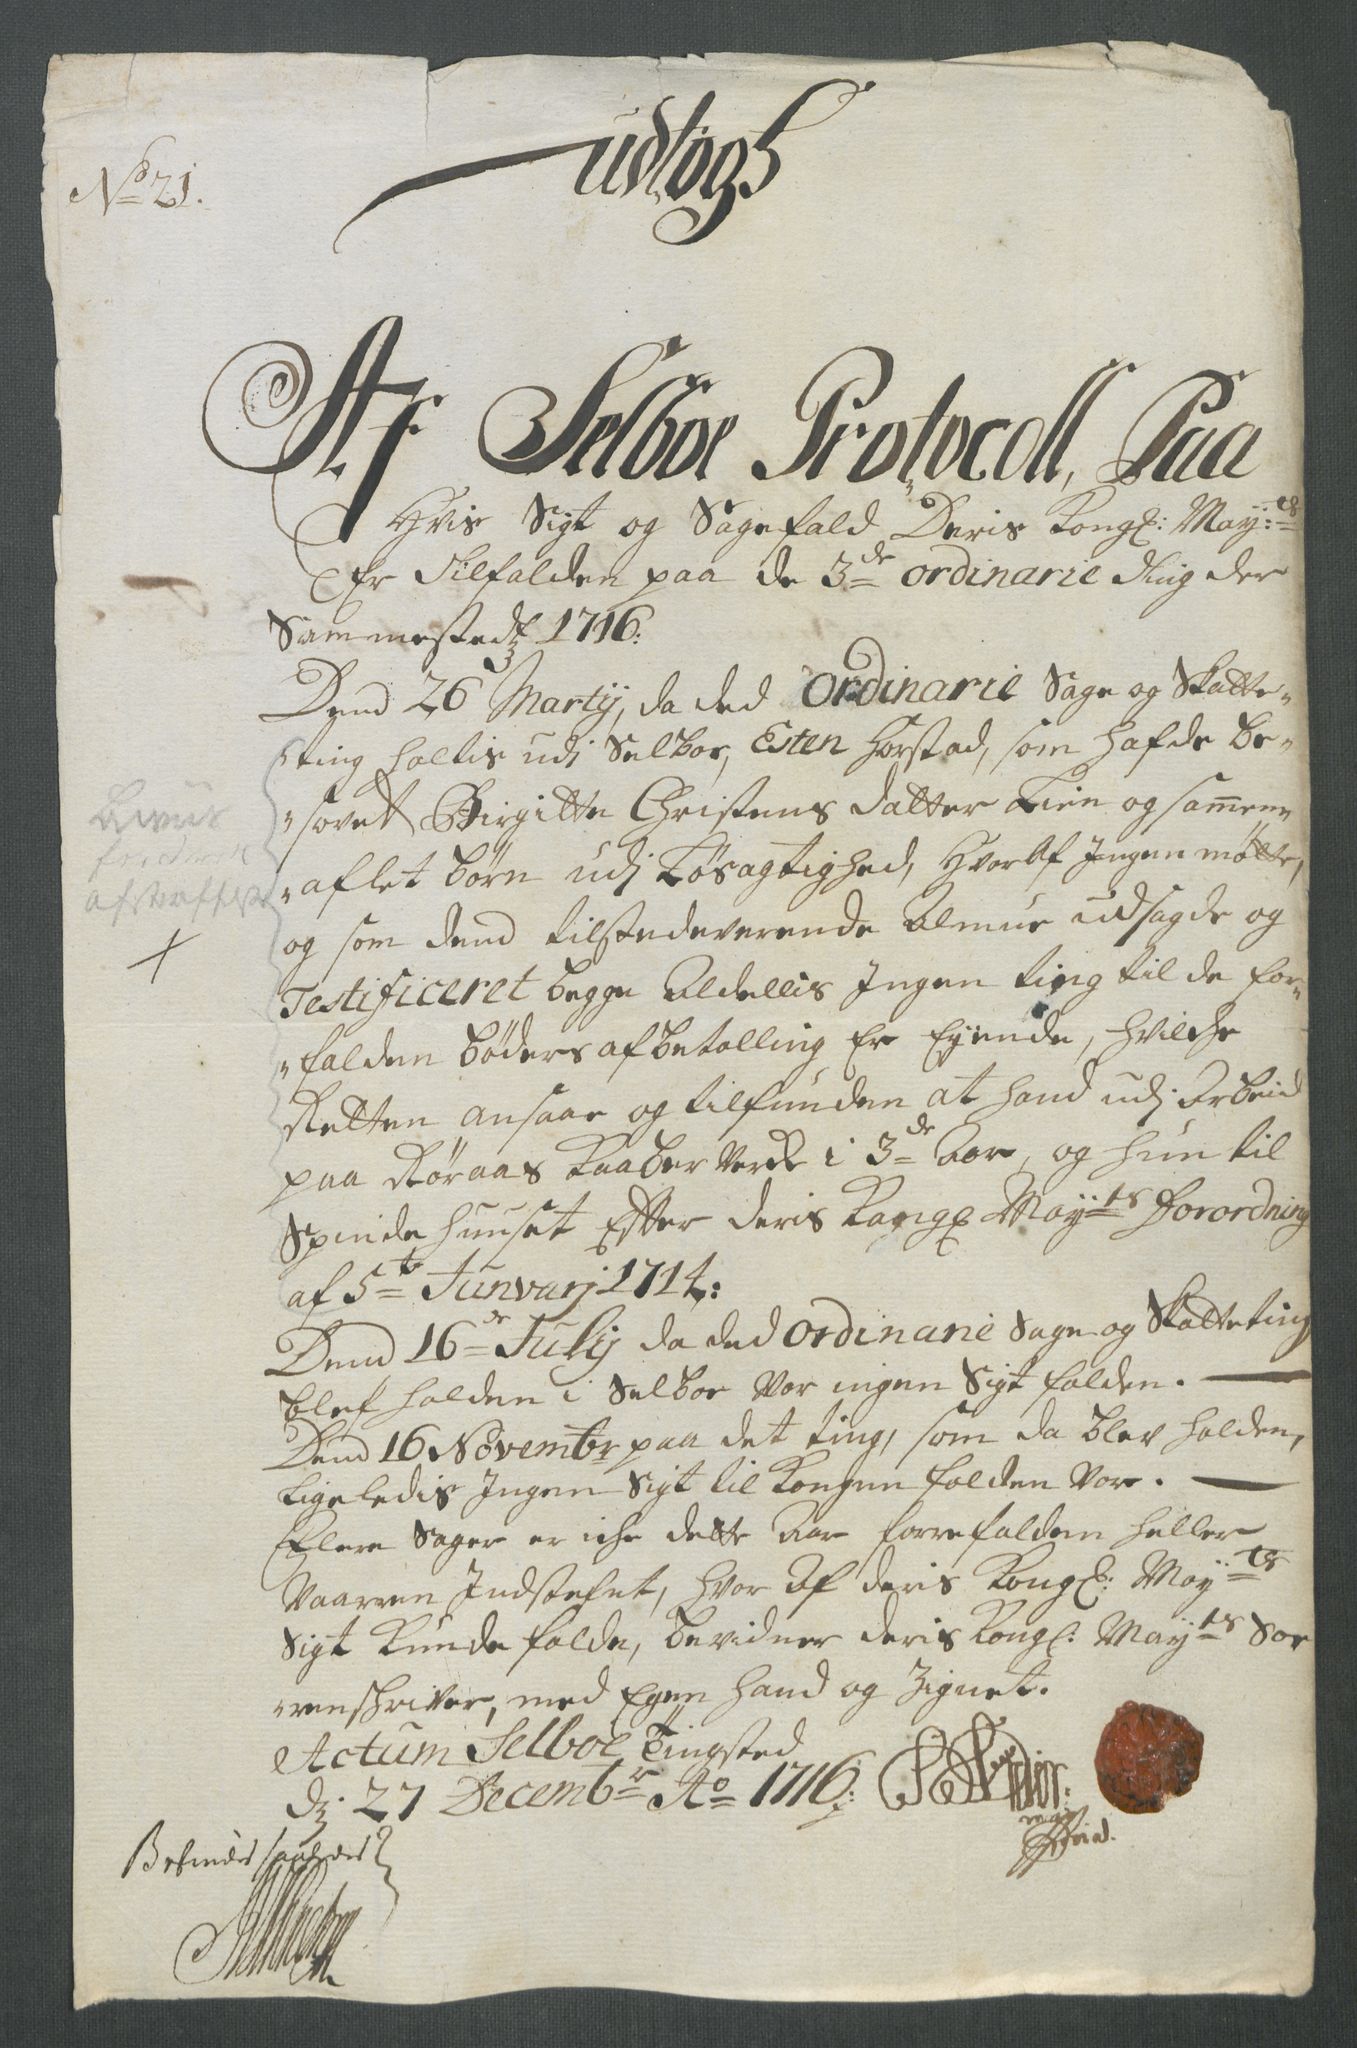 No 21.
udtogh
Af Selboe Protocoll, Paa
Hvis Sigt og Sagefald Deris Kongl: May:ts
Er Tilfalden paa de 3de ordinarie Ting der
Sammestedz 1716:
Dend 26 Martij, da ded Ordinarie Sage og Skatte-
ting holtis udi Selboe, Esten Horstad, som hafde be-
sovet Birgitte Christens datter Lien og sammen-
aflet børn udi Løsagtighed, Hvoraf Ingen møtte,
og som dend tilstedeverende Almue udsagde og
Testificeret begge Aldellis Ingen ting til de for-
falden bøders afbetalling Er Eyende, hvilche
Retten ansaae og tilfunden at hand udj Arbeid
paa Røraas Kaaber Verck i 3de Aar, og hun til
Spindehuuset Effter deris Kongl May:ts Forordning
af 5te Junvarj 1714:
Dend 16de Julij da ded Ordinarie Sage og Skatteting
blef holden i Selboe Var ingen Sigt falden.
Dend 16 Novembr paa det ting, som da blev holden,
Ligeledis Ingen Sigt til Kongen falden Var.
Flere Sager er iche dette Aar forrefalden heller
Vaarren Indstefnt, hvor Af deris Kongl: May:ts
Sigt Kunde falde, bevidner deris Kongl: May:ts Sor
renschriver, med Egen hand og Zignet.
Actum Selboe Tingsted
dz. 27 Decembr Ao 1716:
Befindes saaledis